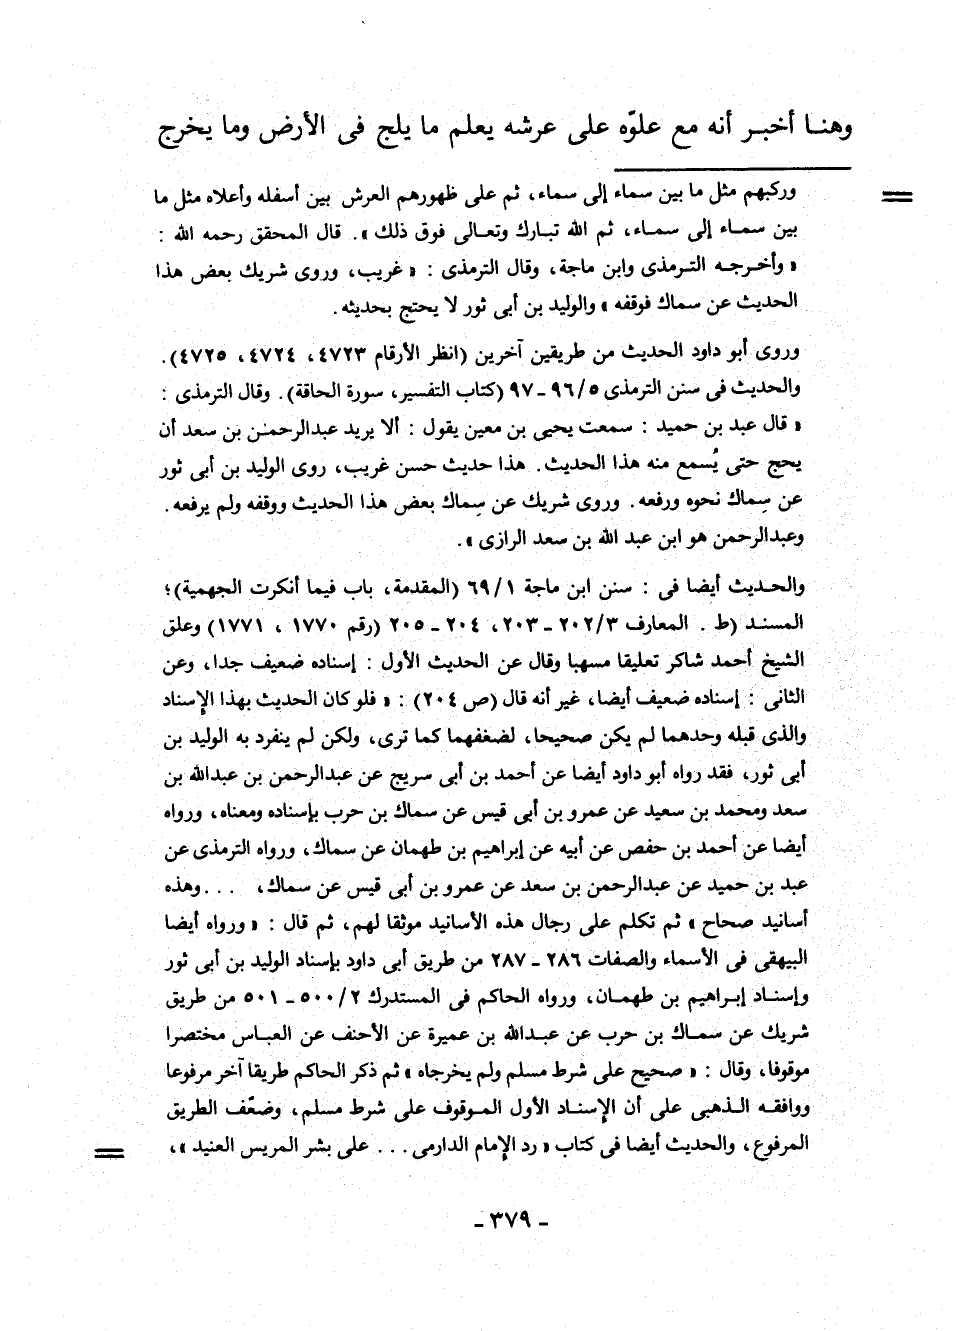 وهنا أخبر أنه مع علوّه على عرشه يعلم ما يلج فى الأرض وما يخرج
وركبهم مثل ما بين سماء إلى سماء، ثم على ظهورهم العرش بين أسفله وأعلاه مثل ما
بين سماء إلى سماء، ثم الله تبارك وتعالى فوق ذلك ». قال المحقق رحمه الله :
« وأخرجه الترمذى وابن ماجة، وقال الترمذى : « غريب، وروى شريك بعض هذا
الحديث عن سماك فوقفه » والوليد بن أبى ثور لا يحتج بحديثه .
وروى أبو داود الحديث من طريقين آخرين (انظر الأرقام ٤٧٢٣، ٤٧٢٤، ٤٧٢٥).
والحديث فى سنن الترمذى ٩٦/٥ - ٩٧ (كتاب التفسير، سورة الحاقة). وقال الترمذى :
« قال عبد بن حميد : سمعت يحيى بن معين يقول : ألا يريد عبدالرحمن بن سعد أن
يحج حتى يُسمع منه هذا الحديث. هذا حديث حسن غريب، روى الوليد بن أبى ثور
عن سِماك نحوه ورفعه. وروى شريك عن سِماك بعض هذا الحديث ووقفه ولم يرفعه.
وعبدالرحمن هو ابن عبد الله بن سعد الرازى ».
والحديث أيضا فى : سنن ابن ماجة ٦٩/١ (المقدمة، باب فيما أنكرت الجهمية)؛
المسند (ط . المعارف ٢٠٢/٣ - ٢٠٣، ٢٠٤ - ٢٠٥ (رقم ١٧٧٠ ، ١٧٧١) وعلق
الشيخ أحمد شاكر تعليقا مسهبا وقال عن الحديث الأول : إسناده ضعيف جدا، وعن
الثانى : إسناده ضعيف أيضا، غير أنه قال (ص ٢٠٤) : « فلو كان الحديث بهذا الإسناد
والذى قبله وحدهما لم يكن صحيحا، لضعفهما كما ترى، ولكن لم ينفرد به الوليد بن
أبى ثور، فقد رواه أبو داود أيضا عن أحمد بن أبى سريج عن عبدالرحمن بن عبدالله بن
سعد ومحمد بن سعيد عن عمرو بن أبى قيس عن سماك بن حرب بإسناده ومعناه، ورواه
أيضا عن أحمد بن حفص عن أبيه عن إبراهيم بن طهمان عن سماك، ورواه الترمذى عن
عبد بن حميد عن عبدالرحمن بن سعد عن عمرو بن أبى قيس عن سماك، . . . وهذه
أسانيد صحاح » ثم تكلم على رجال هذه الأسانيد موثقا لهم، ثم قال : « ورواه أيضا
البيهقى فى الأسماء والصفات ٢٨٦ - ٢٨٧ من طريق أبى داود بإسناد الوليد بن أبى ثور
وإسناد إبراهيم بن طهمان، ورواه الحاكم فى المستدرك ٥٠٠/٢ - ٥٠١ من طريق
شريك عن سماك بن حرب عن عبدالله بن عميرة عن الأحنف عن العباس مختصرا
موقوفا، وقال : « صحيح على شرط مسلم ولم يخرجاه » ثم ذكر الحاكم طريقا آخر مرفوعا
ووافقه الذهبى على أن الإسناد الأول الموقوف على شرط مسلم، وضعّف الطريق
المرفوع، والحديث أيضا فى كتاب « رد الإمام الدارمى . . . على بشر المريس العنيد »،
- ٣٧٩ -